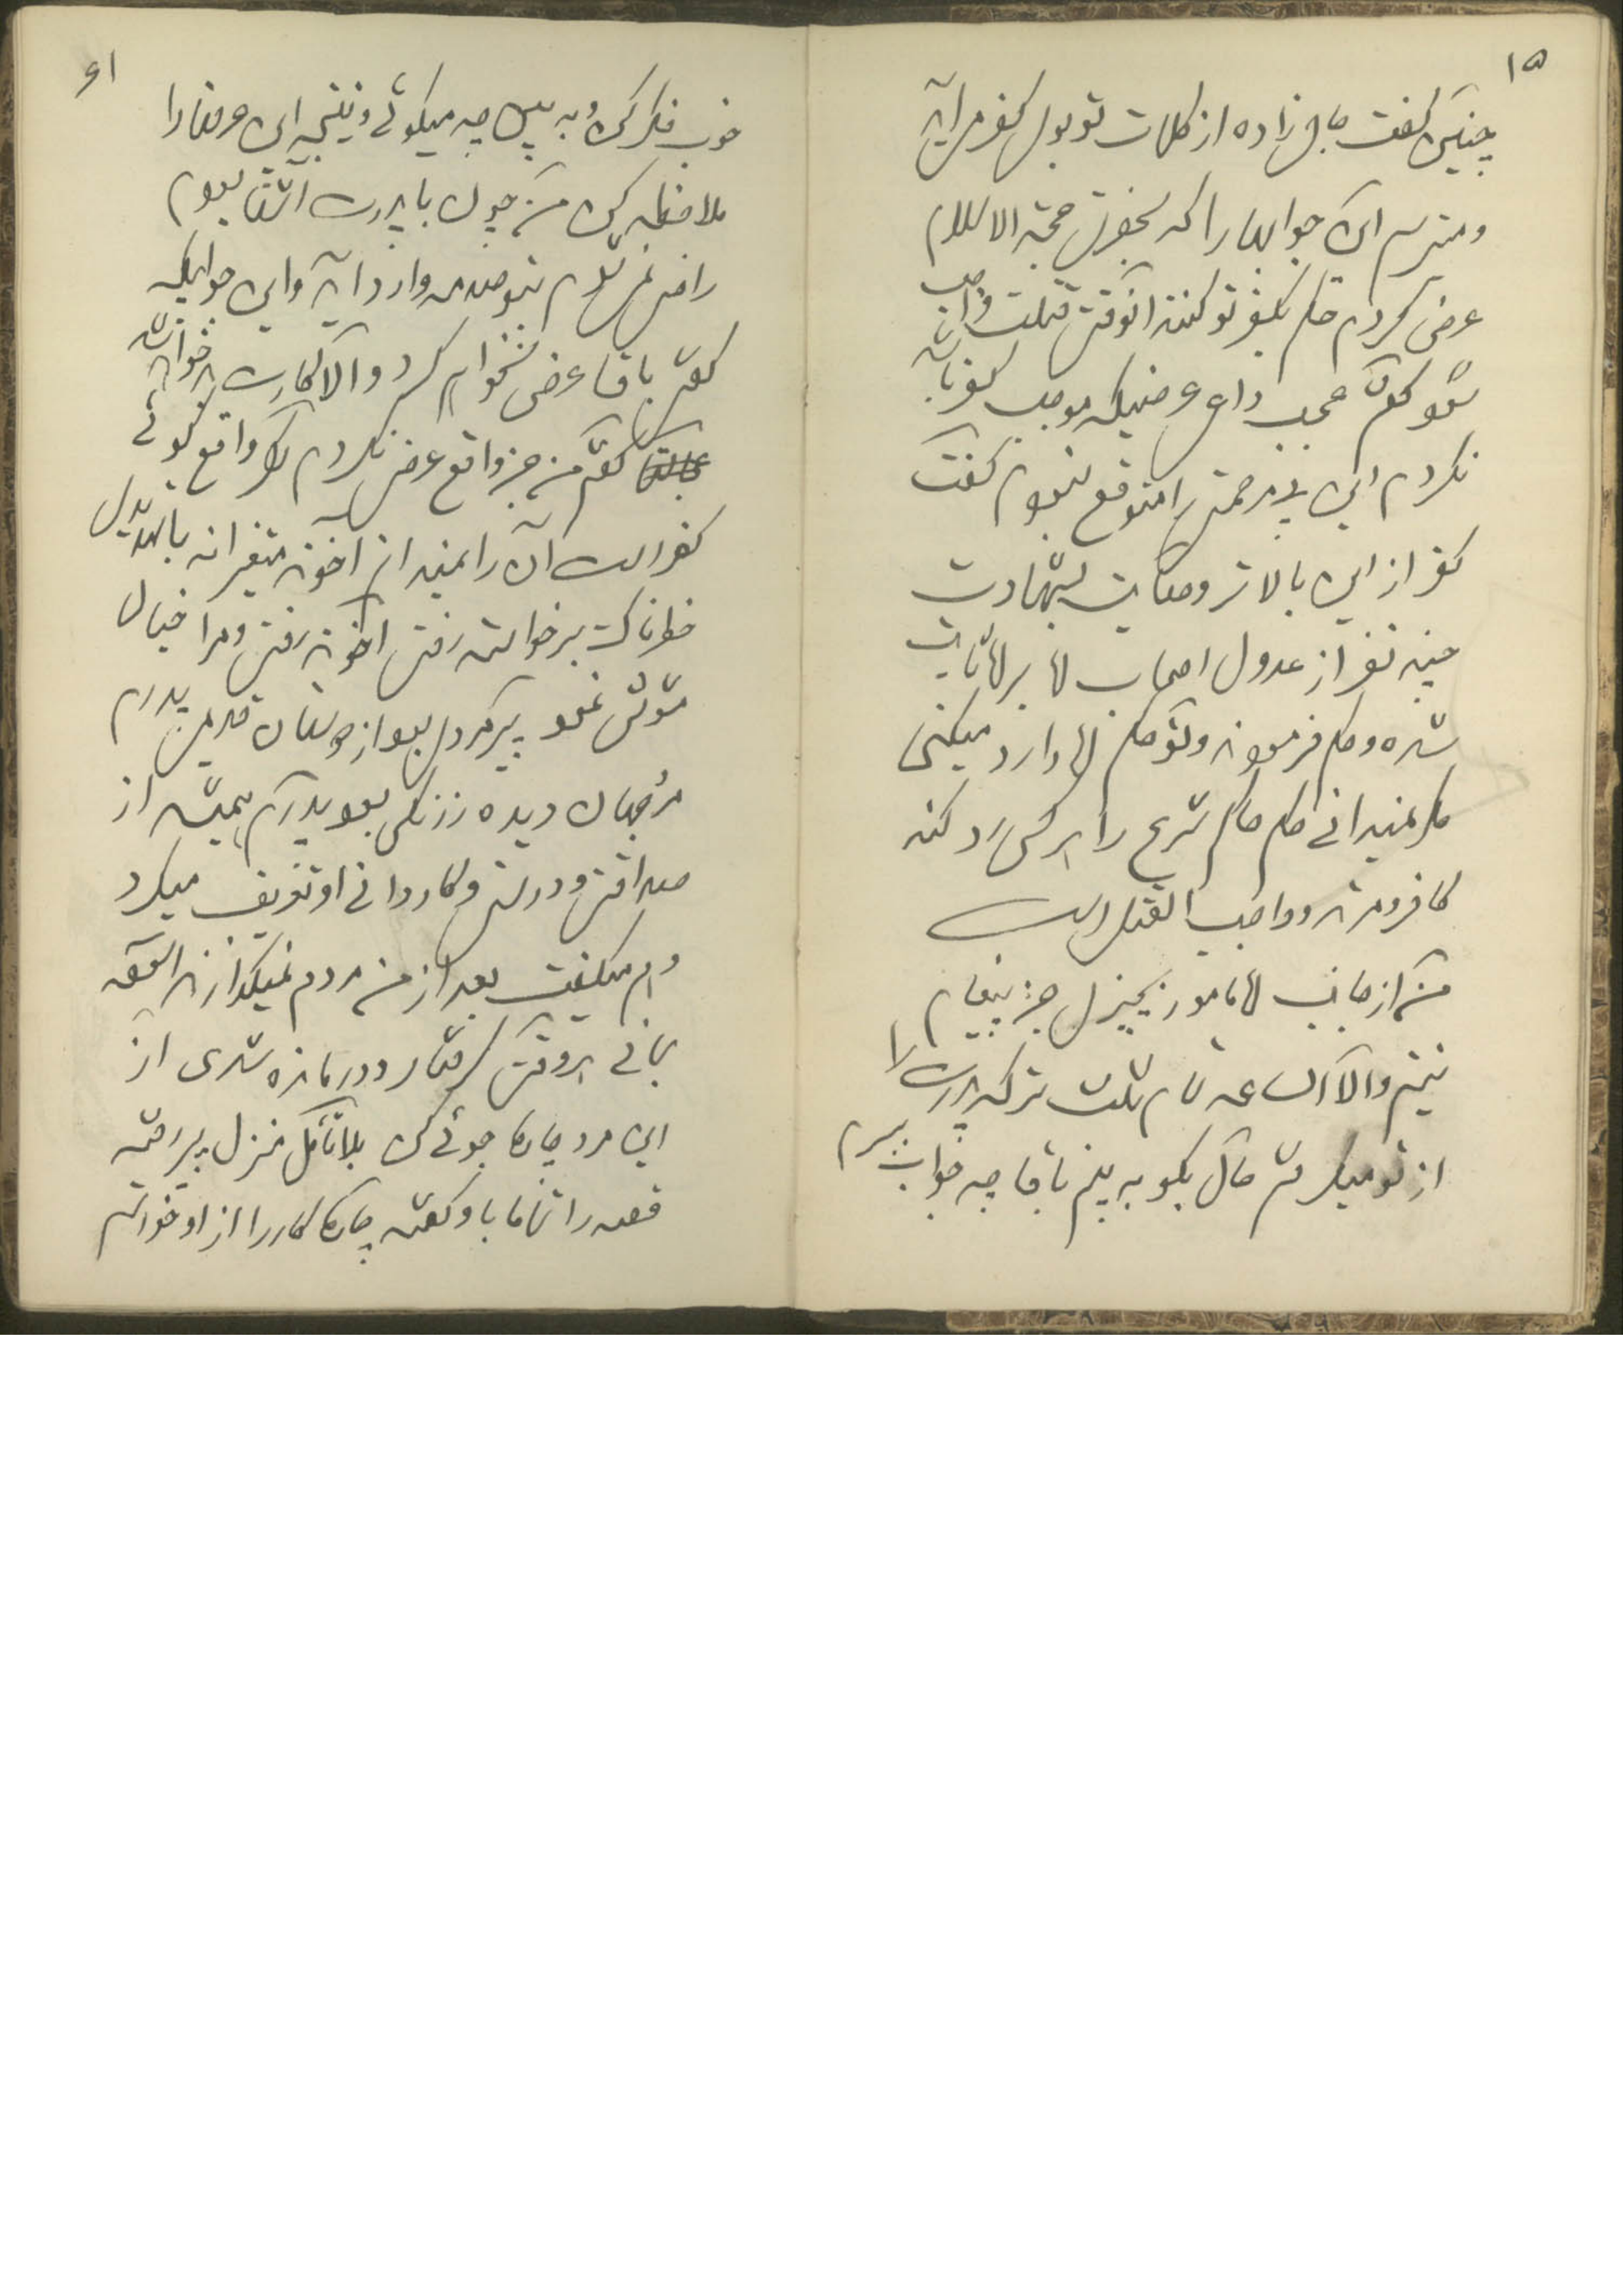 ۱۵
چنین گفت جان زاده از کلمات تو بوی کفر می‌آید
و میترسم این جوابها را که بحضرت حجة الاسلام
عرض کردم حکم بکفر تو کنند آنوقت قتلت واجب
شود گفتم عجب داعی عرضیکه موجب کفر باشد
نکردم این بی‌مرحمتی را متوقع نبودم گفت
کفر از این بالاتر وصایت بشهادت
چند نفر از عدول اصحاب آقا بر آقا ثابت
شده و حکم فرموده‌اند و تو حکم آقا را رد میکنی
مگر نمیدانی حکم حاکم شرع را هر کس رد کند
کافر و مرتد و واجب القتل است
من از جانب آقا مامور بچیزی جز پیغام
نیستم والا الساعه تمام ثلث ترکه پدرت را
از تو میگرفتم حال بگو به بینم بآقا چه جواب ببرم
۱۶
خوب فکر کن و به بین چه میگوئی و نتیجه این حرفها را
ملاحظه کن من چون با پدرت آشنا بودم
راضی نمی‌شوم بتو صدمه وارد آید و این جوابیکه
گفتی بآقا عرض نخواهم کرد والا کارت خواهد
ساخت گفتم من جز واقع عرض نکردم اگر واقع گوئی
کفر است آن را نمیدانم آخوند متغیرانه با تهدیدی
خطرناک برخواسته رفت آخوند رفت و مرا خیال
مشوش نمود پیرمردی بود از دوستان قدیمی پدرم
مرد جهان دیده زرنگی بود پدرم همیشه از
صداقت و درستی و کاردانی او تعریف میکرد
و هم میگفت بعد از من مردم نمیگذارند آسوده
بمانی هر وقت گرفتار و درمانده شدی از
این مرد چاره جوئی کن بلا تأمل منزل پیر رفته
قصه را تماما باو گفته چاره کار را از او خواستم